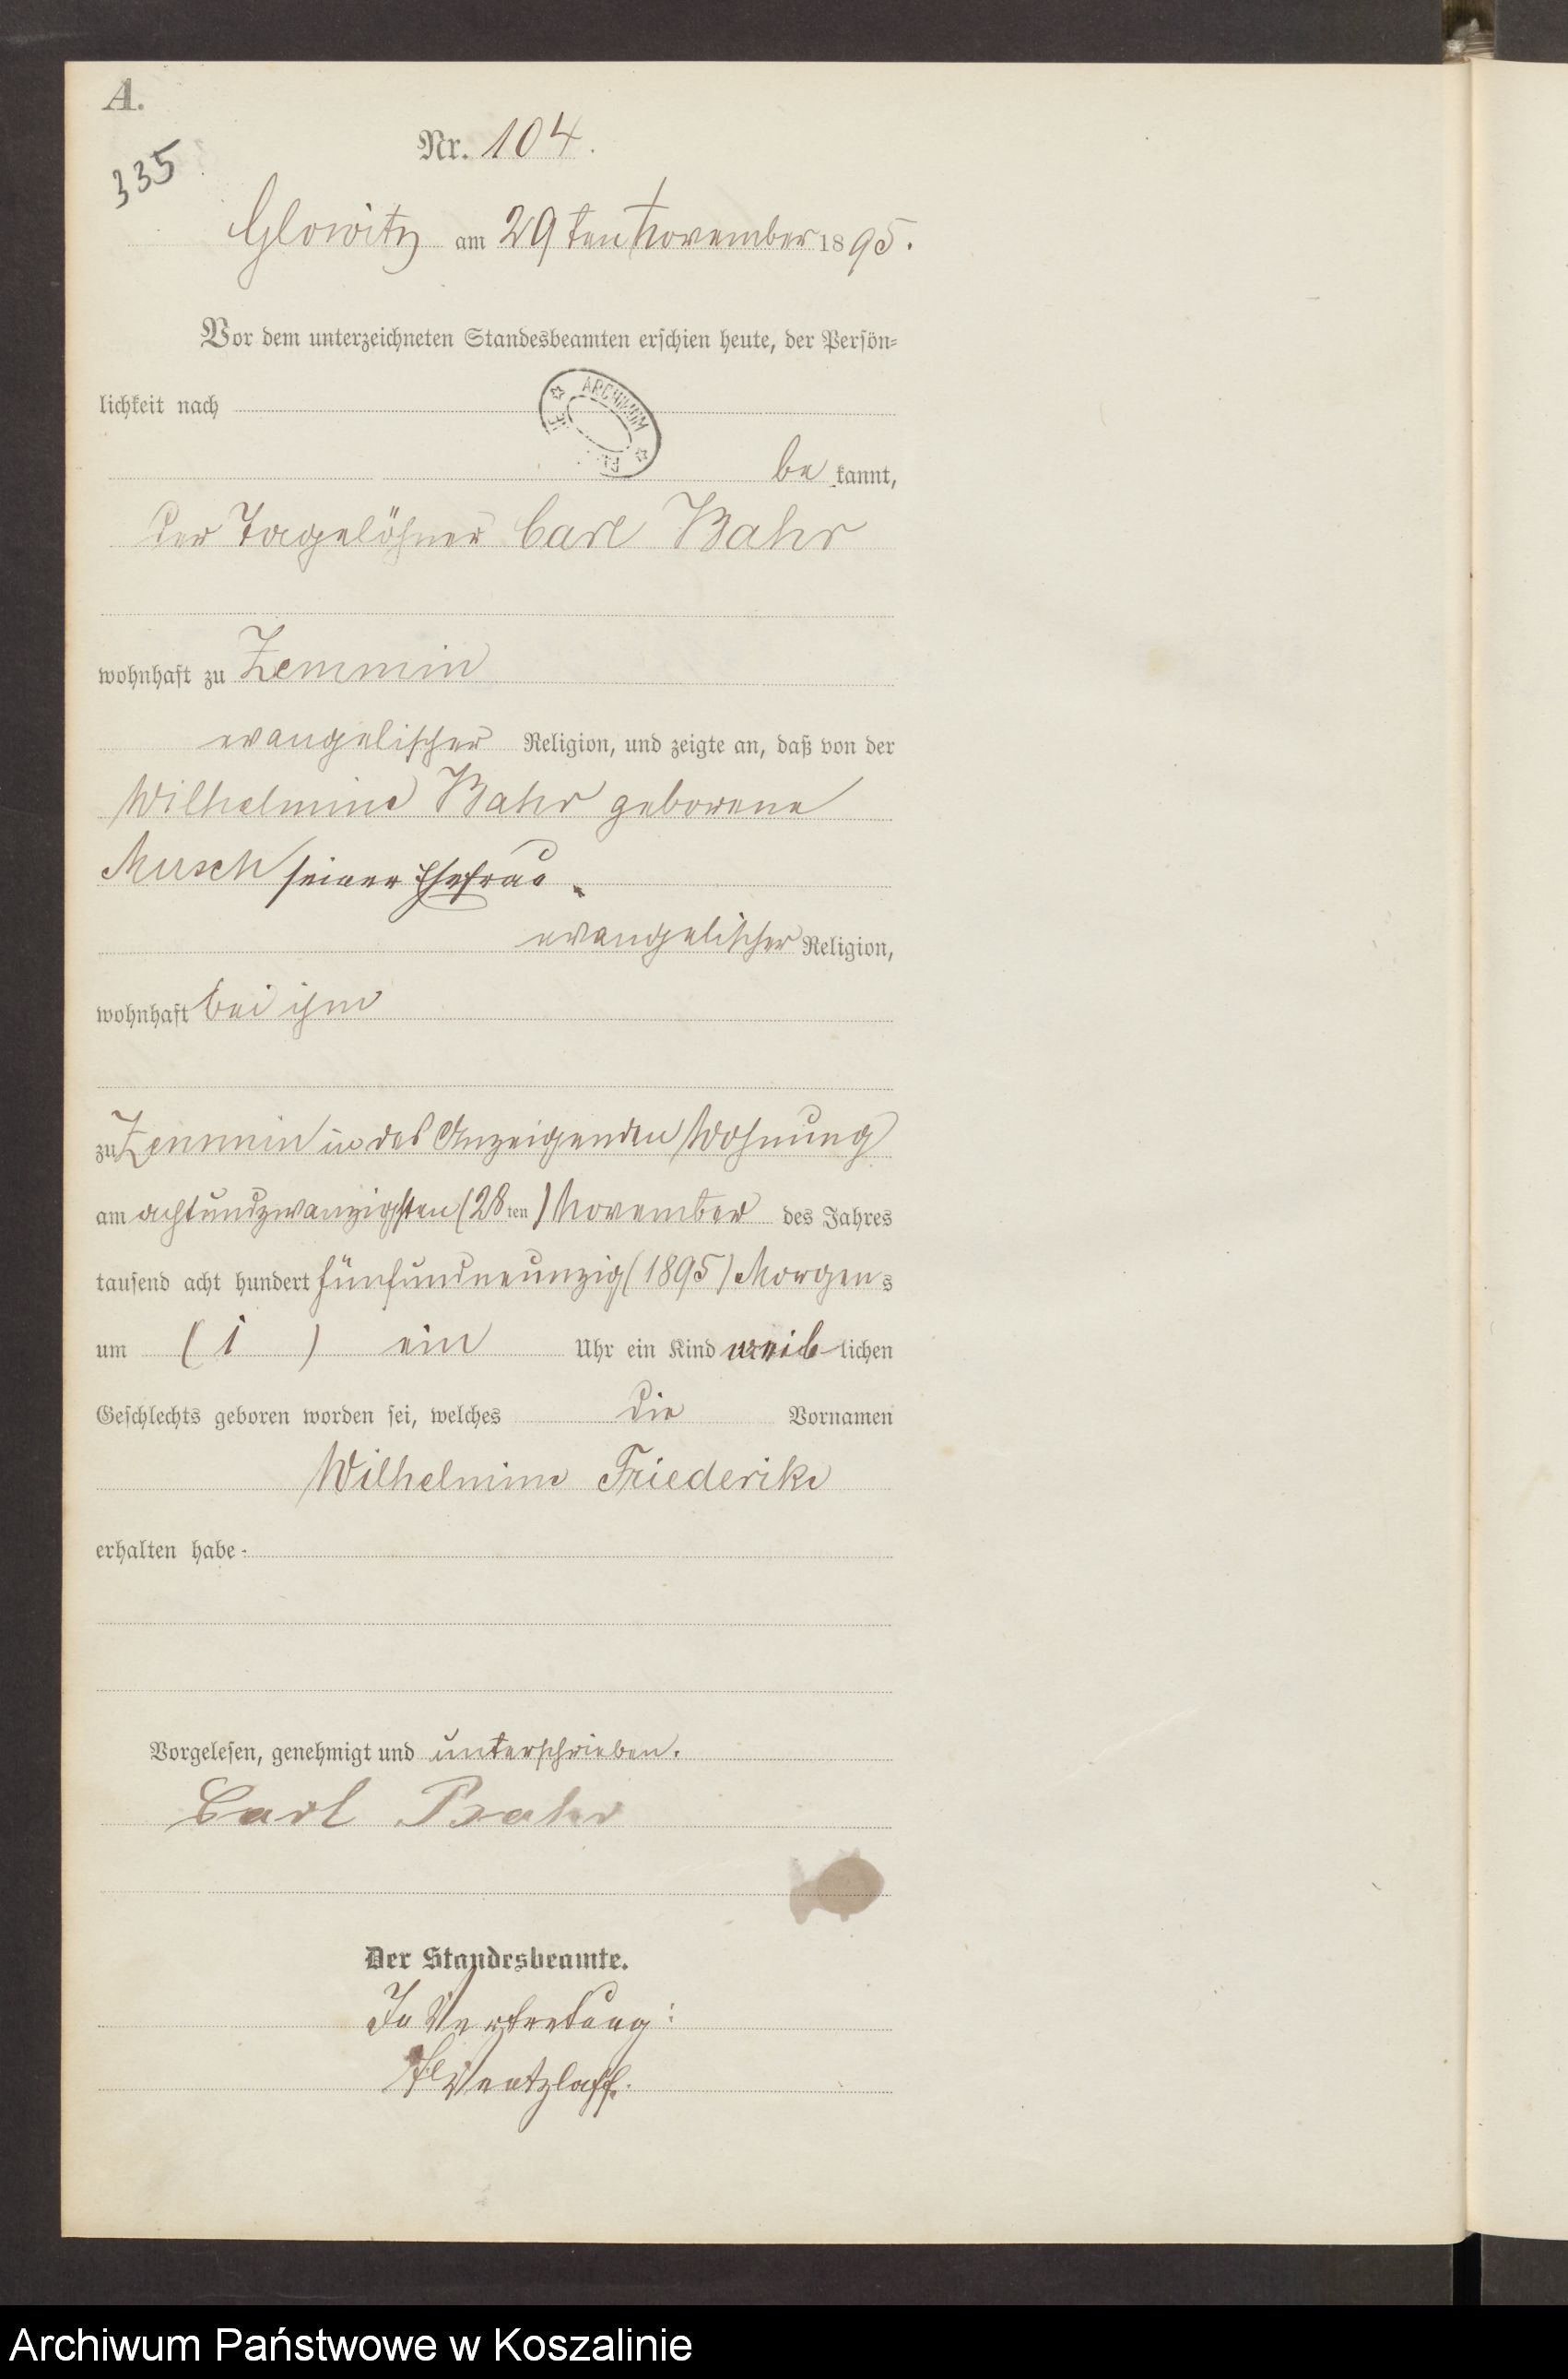 A.
335
Nr. 104.
Glowitz am 29ten November 1895.
Vor dem unterzeichneten Standesbeamten erschien heute, der Persön-
lichkeit nach
ARCHIWUM
be kannt,
der Tagelöhner Carl Bahr
wohnhaft zu Zemmin
evangelischer Religion, und zeigte an, daß von der
Wilhelmine Bahr geborene
Musch seiner Ehefrau
evangelischer Religion,
wohnhaft bei ihm
zu Zemmin in des Anzeigenden Wohnung
am achtundzwanzigsten (28ten) November des Jahres
tausend acht hundert fünfundneunzig (1895) Morgens
um (1) ein Uhr ein Kind weiblichen
Geschlechts geboren worden sei, welches die Vornamen
Wilhelmine Friederike
erhalten habe.
Vorgelesen, genehmigt und unterschrieben.
Carl Bahr
Der Standesbeamte.
In Vertretung:
Wentzlaff.
Archiwum Państwowe w Koszalinie